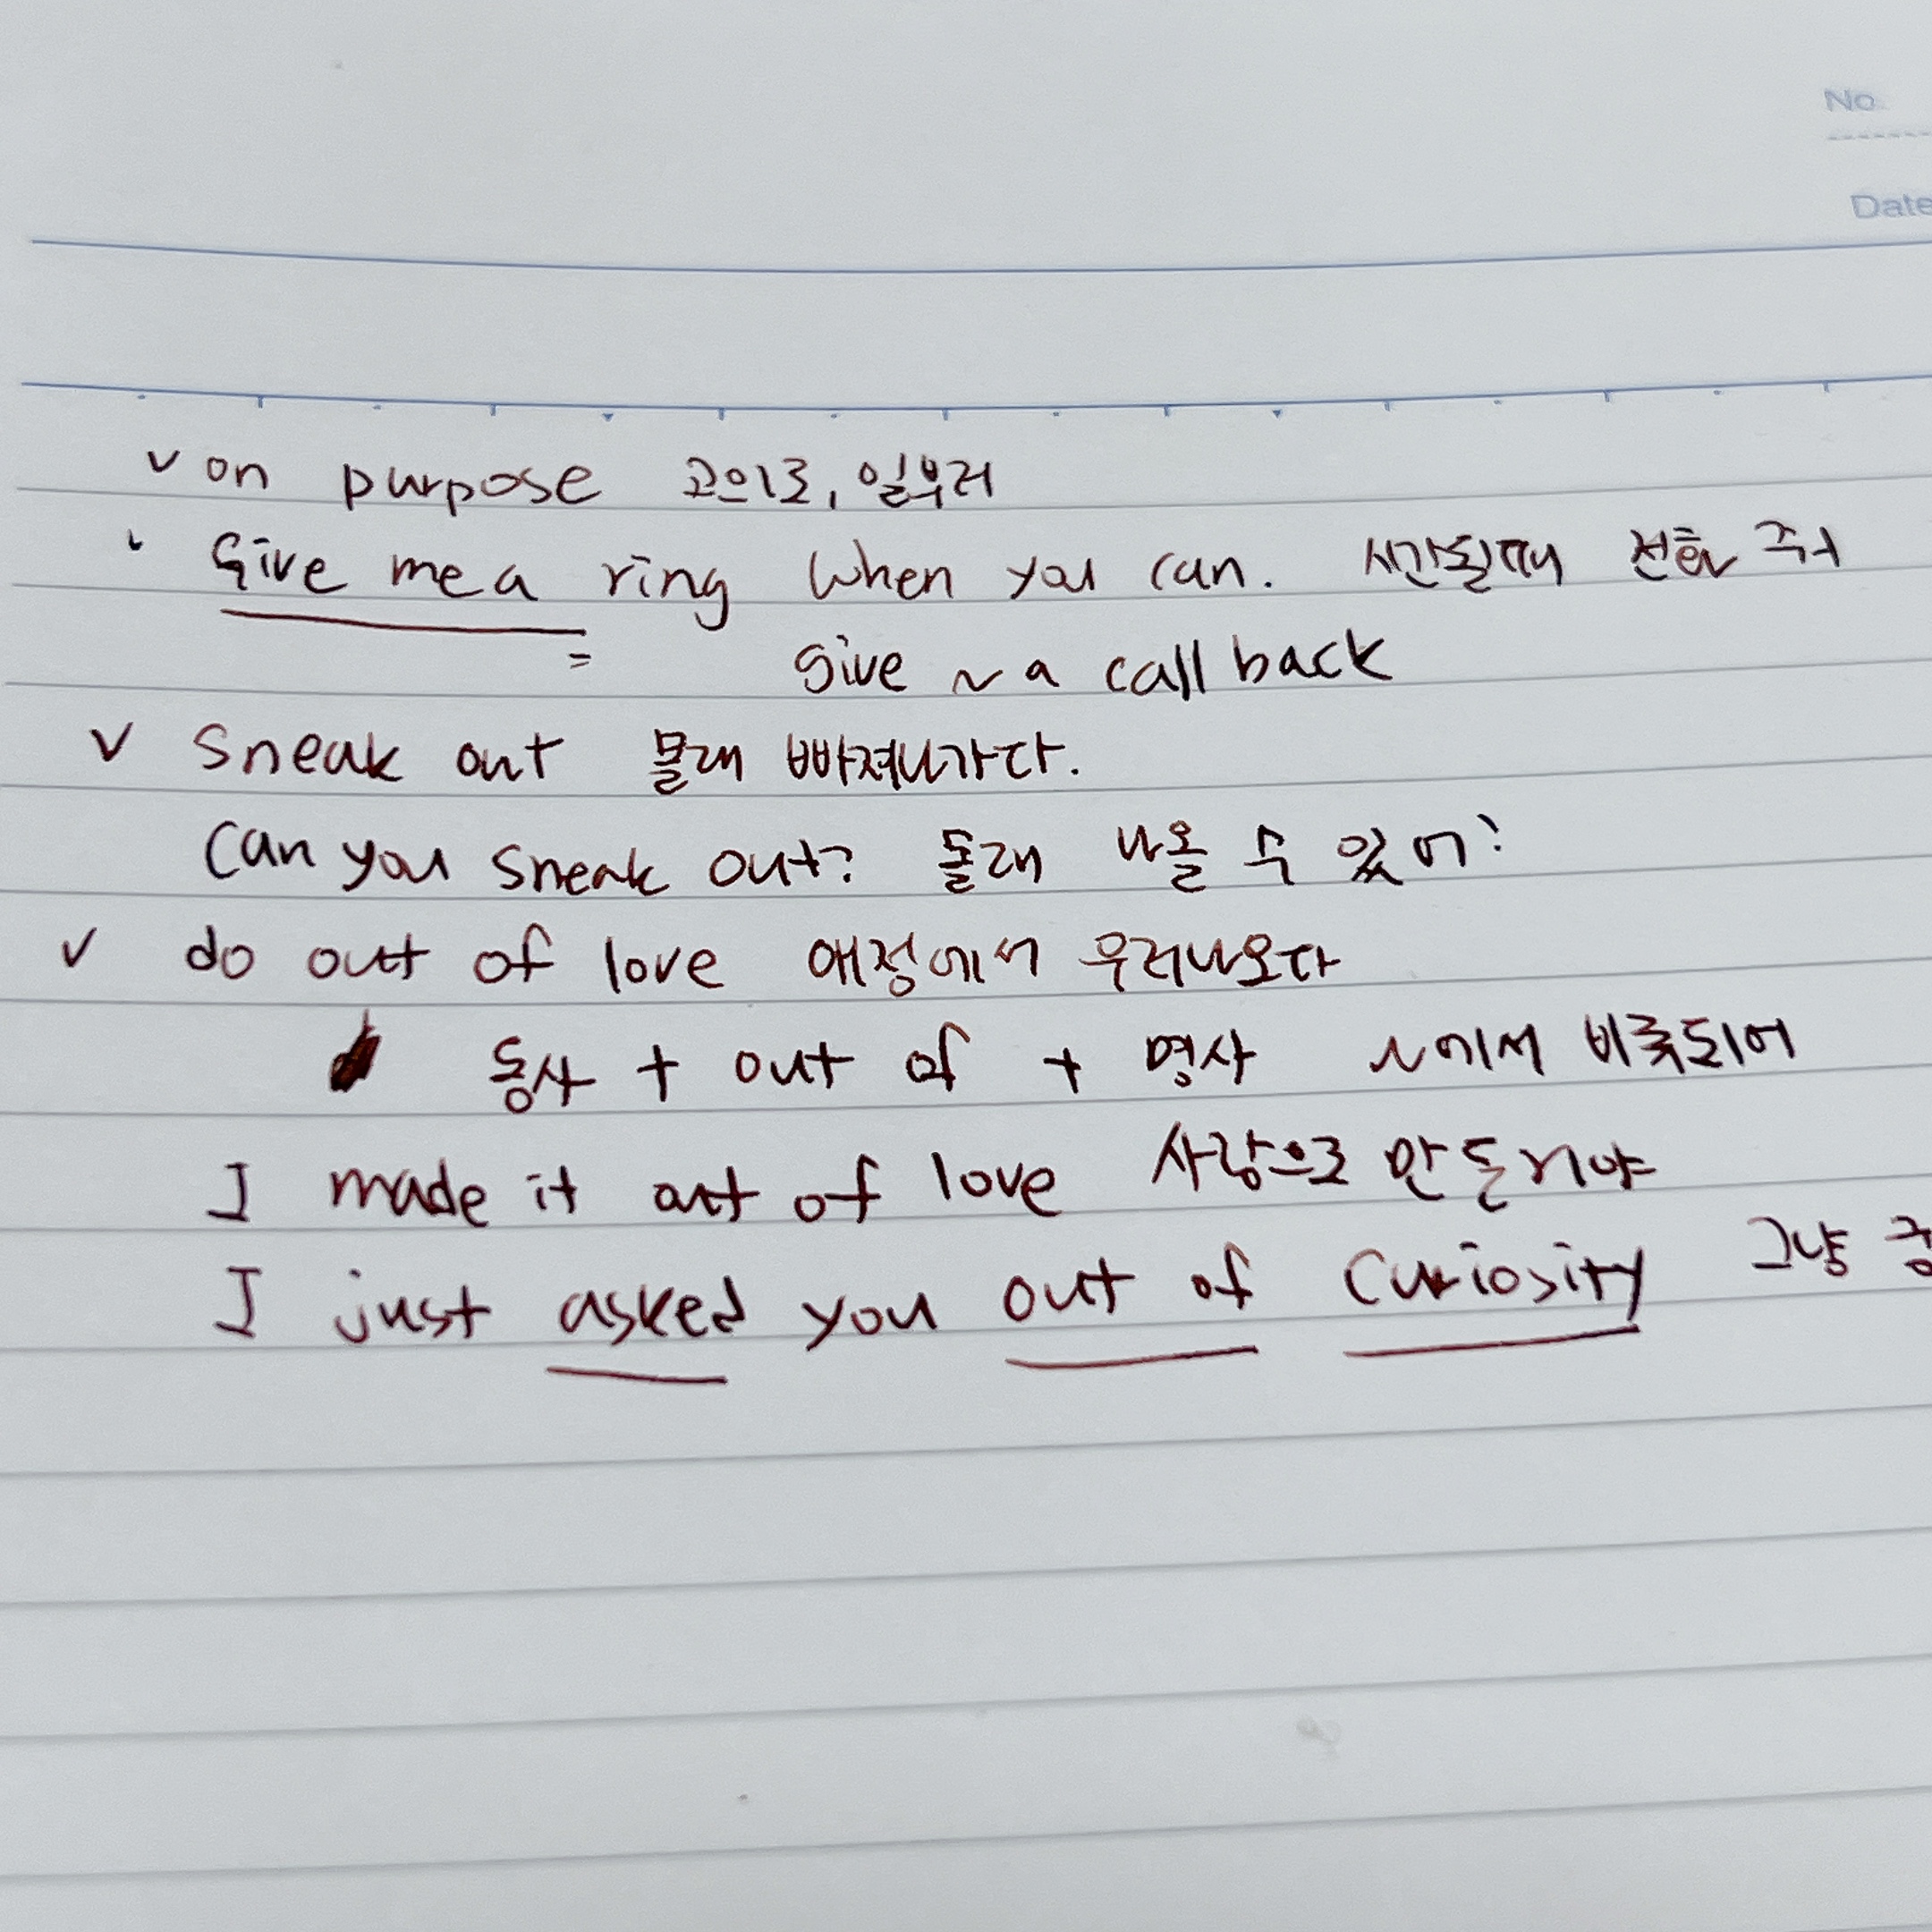 No.
Date
v on purpose 고의로, 일부러
v Give me a ring when you can. 시간될때 전화 줘
= give ~ a call back
v sneak out 몰래 빠져나가다.
Can you sneak out? 몰래 나올 수 있어?
v do out of love 애정에서 우러나오다
동사 + out of + 명사 ~에서 비롯되어
I made it out of love 사랑으로 만든거야
I just asked you out of curiosity 그냥 궁